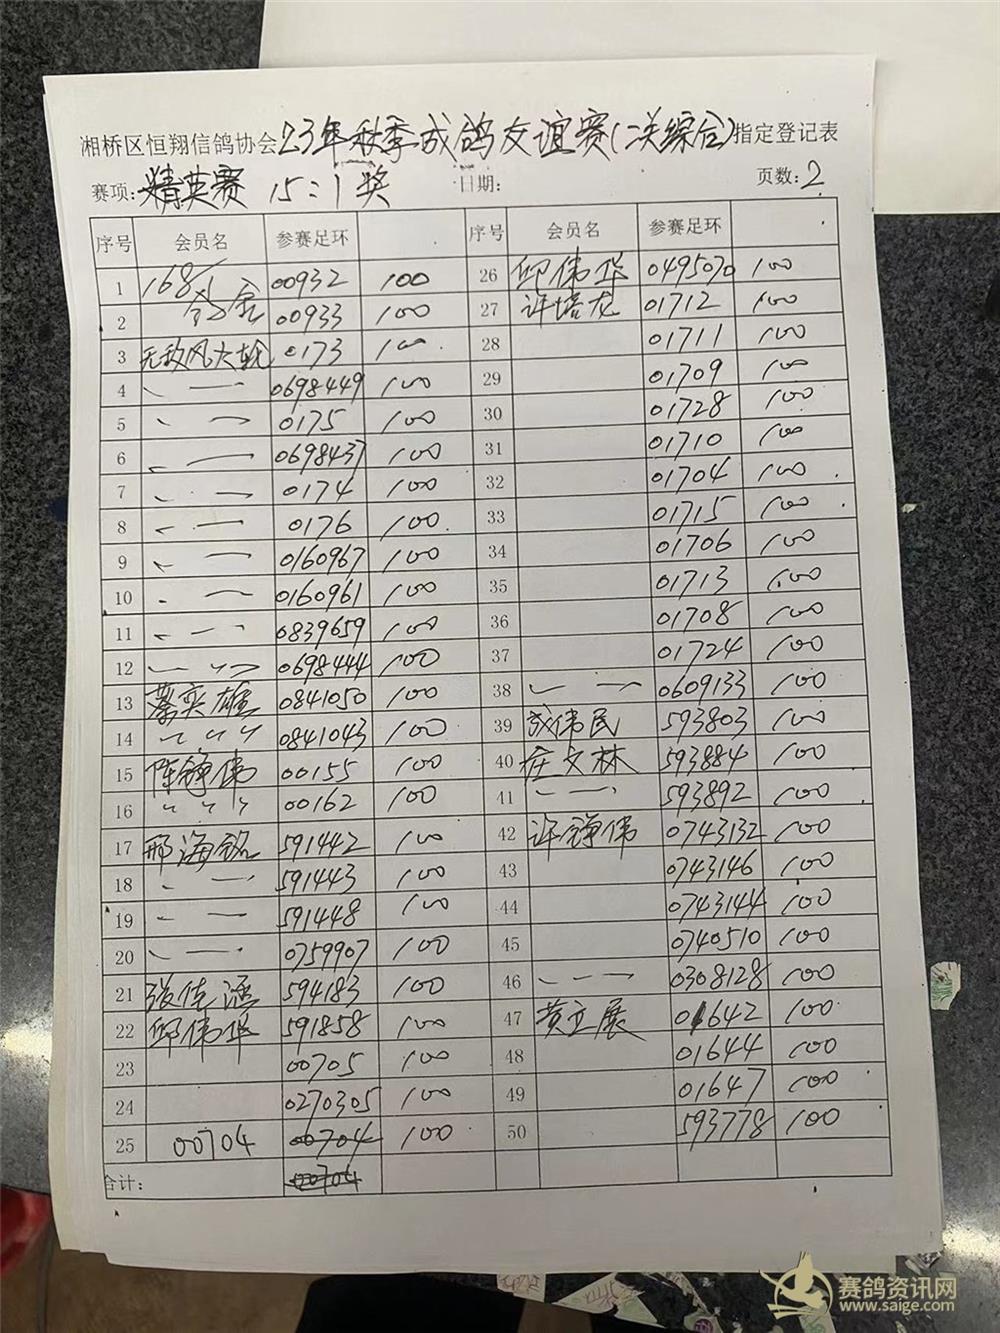 湘桥区恒翔信鸽协会23年秋季成鸽友谊赛(二关综合)指定登记表
赛项:精英赛 15:1奖 日期: 页数:2
序号 会员名 参赛足环 序号 会员名 参赛足环
1 168/ 00932 100 26 邱伟华 0495070 100
2 00933 100 27 许培龙 01712 100
3 无敌风火轮 0173 100 28 01711 100
4 〃 — 0698449 100 29 01709 100
5 〃 — 0175 100 30 01728 100
6 〃 — 0698437 100 31 01710 100
7 〃 — 0174 100 32 01704 100
8 〃 — 0176 100 33 01715 100
9 〃 — 0160967 100 34 01706 100
10 〃 — 0160961 100 35 01713 100
11 〃 — 0839659 100 36 01708 100
12 〃 〃 0698444 100 37 01724 100
13 蔡奕雄 0841050 100 38 〃 — 0609133 100
14 〃 〃 〃 0841043 100 39 成伟民 593803 100
15 陈铮伟 00155 100 40 庄文林 593884 100
16 〃 〃 〃 00162 100 41 〃 — 593892 100
17 邢海铭 591442 100 42 许铮伟 0743132 100
18 〃 — 591443 100 43 0743146 100
19 〃 — 591448 100 44 0743144 100
20 〃 — 0759907 100 45 0740510 100
21 张佳涵 594183 100 46 〃 — 0308128 100
22 邱伟华 591858 100 47 黄立展 01642 100
23 00705 100 48 01644 100
24 0270305 100 49 01647 100
25 00704 00704 100 50 593778 100
合计: 00704
赛鸽资讯网
www.saige.com